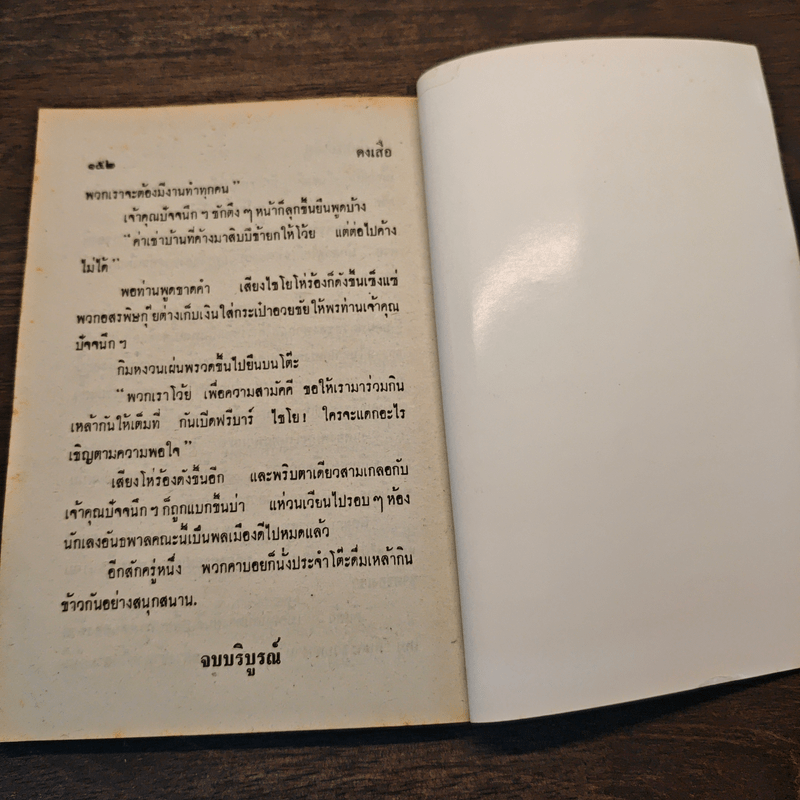 ๑๕๒ ดงเสือ
พวกเราจะต้องมีงานทำทุกคน"
เจ้าคุณปัจจนึก ฯ ชักตึง ๆ หน้าก็ลุกขึ้นยืนพูดบ้าง
"ค่าเช่าบ้านที่ค้างมาสิบปีข้ายกให้โว้ย แต่ต่อไปค้าง
ไม่ได้"
พอท่านพูดขาดคำ เสียงไชโยโห่ร้องก็ดังขึ้นเซ็งแซ่
พวกอสรพิษกุ๊ยต่างเก็บเงินใส่กระเป๋าอวยชัยให้พรท่านเจ้าคุณ
ปัจจนึก ฯ
กิมหงวนเผ่นพรวดขึ้นไปยืนบนโต๊ะ
"พวกเราโว้ย เพื่อความสามัคคี ขอให้เรามาร่วมกิน
เหล้ากันให้เต็มที่ กันเปิดฟรีบาร์ ไชโย! ใครจะแดกอะไร
เชิญตามความพอใจ"
เสียงโห่ร้องดังขึ้นอีก และพริบตาเดียวสามเกลอกับ
เจ้าคุณปัจจนึก ฯ ก็ถูกแบกขึ้นบ่า แห่วนเวียนไปรอบ ๆ ห้อง
นักเลงอันธพาลคณะนี้เป็นพลเมืองดีไปหมดแล้ว
อีกสักครู่หนึ่ง พวกคาบอยก็นั่งประจำโต๊ะดื่มเหล้ากิน
ข้าวกันอย่างสนุกสนาน.
จบบริบูรณ์